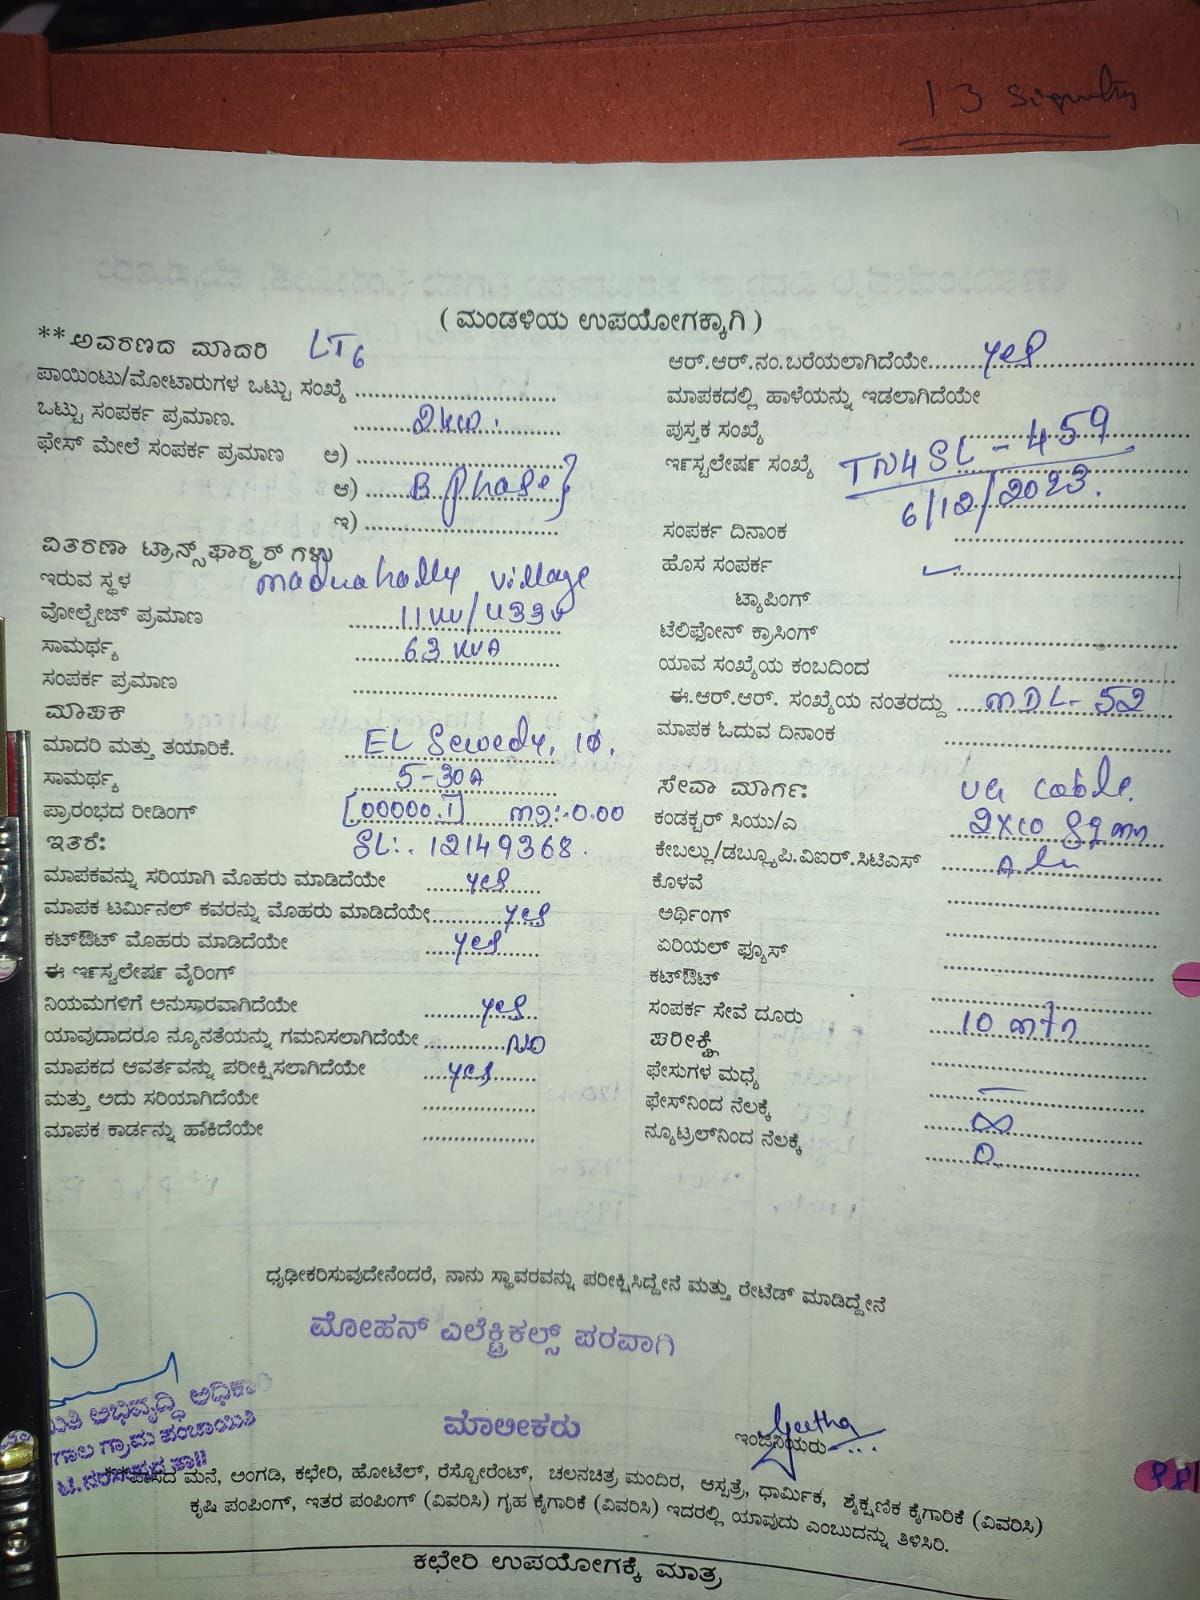 13
( ಮಂಡಳಿಯ ಉಪಯೋಗಕ್ಕಾಗಿ )
**ಆವರಣದ ಮಾದರಿ LT6
ಪಾಯಿಂಟು/ಮೋಟಾರುಗಳ ಒಟ್ಟು ಸಂಖ್ಯೆ ....................
ಒಟ್ಟು ಸಂಪರ್ಕ ಪ್ರಮಾಣ. 2kw.
ಫೇಸ್ ಮೇಲೆ ಸಂಪರ್ಕ ಪ್ರಮಾಣ ಅ) ....................
ಆ) B phase }
ಇ) ....................
ವಿತರಣಾ ಟ್ರಾನ್ಸ್‌ಫಾರ್ಮ್ರರ್ ಗಳು
ಇರುವ ಸ್ಥಳ village
ವೋಲ್ಟೇಜ್ ಪ್ರಮಾಣ 11KV/433V
ಸಾಮರ್ಥ್ಯ 63 KVA
ಸಂಪರ್ಕ ಪ್ರಮಾಣ ....................
ಮಾಪಕ
ಮಾದರಿ ಮತ್ತು ತಯಾರಿಕೆ. EL Sewedy, 1φ.
ಸಾಮರ್ಥ್ಯ 5-30A
ಪ್ರಾರಂಭದ ರೀಡಿಂಗ್ [00000.1] MD:-0.00
ಇತರೆ: SL:. 12149368.
ಮಾಪಕವನ್ನು ಸರಿಯಾಗಿ ಮೊಹರು ಮಾಡಿದೆಯೇ yes
ಮಾಪಕ ಟರ್ಮಿನಲ್ ಕವರನ್ನು ಮೊಹರು ಮಾಡಿದೆಯೇ yes
ಕಟ್‌ಔಟ್ ಮೊಹರು ಮಾಡಿದೆಯೇ yes
ಈ ಇನ್‌ಸ್ಟಲೇಷನ್ ವೈರಿಂಗ್
ನಿಯಮಗಳಿಗೆ ಅನುಸಾರವಾಗಿದೆಯೇ yes
ಯಾವುದಾದರೂ ನ್ಯೂನತೆಯನ್ನು ಗಮನಿಸಲಾಗಿದೆಯೇ NO
ಮಾಪಕದ ಆವರ್ತವನ್ನು ಪರೀಕ್ಷಿಸಲಾಗಿದೆಯೇ yes
ಮತ್ತು ಅದು ಸರಿಯಾಗಿದೆಯೇ ....................
ಮಾಪಕ ಕಾರ್ಡನ್ನು ಹಾಕಿದೆಯೇ ....................
ಆರ್.ಆರ್.ನಂ.ಬರೆಯಲಾಗಿದೆಯೇ yes
ಮಾಪಕದಲ್ಲಿ ಹಾಳೆಯನ್ನು ಇಡಲಾಗಿದೆಯೇ
ಪುಸ್ತಕ ಸಂಖ್ಯೆ ....................
ಇನ್‌ಸ್ಟಲೇಷನ್ ಸಂಖ್ಯೆ TN4SL - 459
6/12/2023.
ಸಂಪರ್ಕ ದಿನಾಂಕ ....................
ಹೊಸ ಸಂಪರ್ಕ ✓
ಟ್ಯಾಪಿಂಗ್
ಟೆಲಿಫೋನ್ ಕ್ರಾಸಿಂಗ್ ....................
ಯಾವ ಸಂಖ್ಯೆಯ ಕಂಬದಿಂದ ....................
ಈ.ಆರ್.ಆರ್. ಸಂಖ್ಯೆಯ ನಂತರದ್ದು MDL- 52
ಮಾಪಕ ಓದುವ ದಿನಾಂಕ ....................
ಸೇವಾ ಮಾರ್ಗ: UG cable.
ಕಂಡಕ್ಟರ್ ಸಿಯು/ಎ 2X10 sqmm
ಕೇಬಲ್ಲು/ಡಬ್ಲ್ಯೂಪಿ.ವಿಐಆರ್.ಸಿಟಿಎಸ್ Alu
ಕೊಳವೆ ....................
ಅರ್ಥಿಂಗ್ ....................
ಏರಿಯಲ್ ಫ್ಯೂಸ್ ....................
ಕಟ್‌ಔಟ್ ....................
ಸಂಪರ್ಕ ಸೇವೆ ದೂರು 10 mtr
ಪರೀಕ್ಷೆ ....................
ಫೇಸುಗಳ ಮಧ್ಯೆ —
ಫೇಸ್‌ನಿಂದ ನೆಲಕ್ಕೆ ∞
ನ್ಯೂಟ್ರಲ್‌ನಿಂದ ನೆಲಕ್ಕೆ 0
ಧೃಢೀಕರಿಸುವುದೇನೆಂದರೆ, ನಾನು ಸ್ಥಾವರವನ್ನು ಪರೀಕ್ಷಿಸಿದ್ದೇನೆ ಮತ್ತು ರೇಟೆಡ್ ಮಾಡಿದ್ದೇನೆ
ಮೋಹನ್ ಎಲೆಕ್ಟ್ರಿಕಲ್ಸ್ ಪರವಾಗಿ
ಅಭಿವೃದ್ಧಿ
ಗ್ರಾಮ ಪಂಚಾಯಿತಿ
ಮಾಲೀಕರು
Geetha
ಇಂಜಿನಿಯರು
**ವಾಸದ ಮನೆ, ಅಂಗಡಿ, ಕಛೇರಿ, ಹೋಟೆಲ್, ರೆಸ್ಟೋರೆಂಟ್, ಚಲನಚಿತ್ರ ಮಂದಿರ, ಆಸ್ಪತ್ರೆ, ಧಾರ್ಮಿಕ, ಶೈಕ್ಷಣಿಕ ಕೈಗಾರಿಕೆ (ವಿವರಿಸಿ)
ಕೃಷಿ ಪಂಪಿಂಗ್, ಇತರ ಪಂಪಿಂಗ್ (ವಿವರಿಸಿ) ಗೃಹ ಕೈಗಾರಿಕೆ (ವಿವರಿಸಿ) ಇದರಲ್ಲಿ ಯಾವುದು ಎಂಬುದನ್ನು ತಿಳಿಸಿರಿ.
ಕಛೇರಿ ಉಪಯೋಗಕ್ಕೆ ಮಾತ್ರ